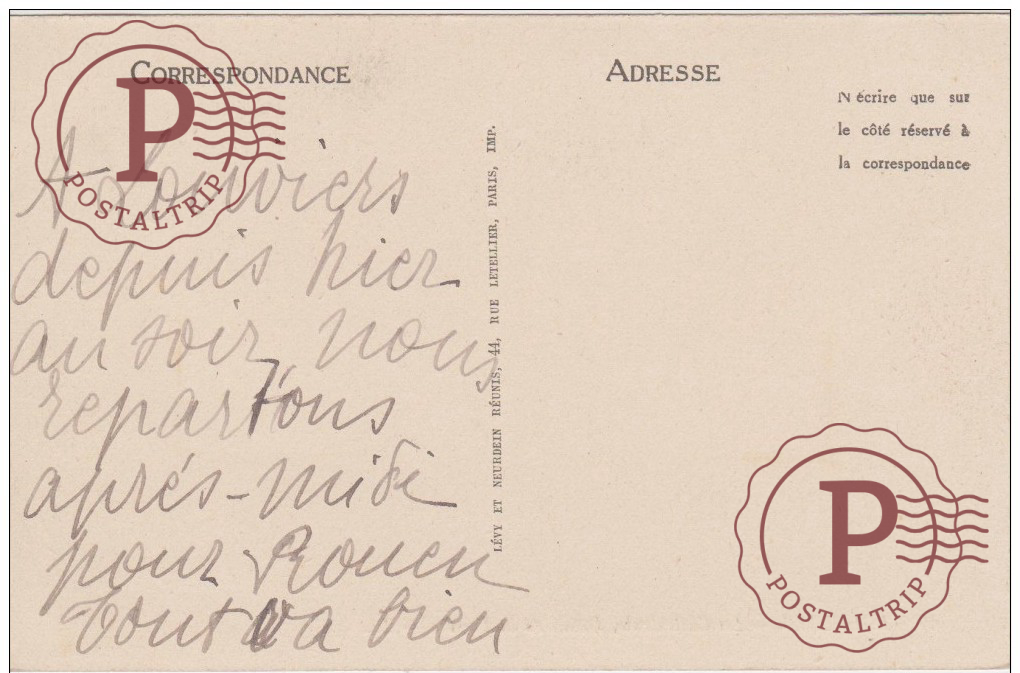 CORRESPONDANCE
ADRESSE
N'écrire que sur
le côté réservé à
la correspondance
A Louviers
depuis hier
au soir, nous
repartons
après-midi
pour Rouen
tout va bien
LÉVY ET NEURDEIN RÉUNIS, 44, RUE LETELLIER, PARIS, IMP.
P
POSTALTRIP
P
POSTALTRIP